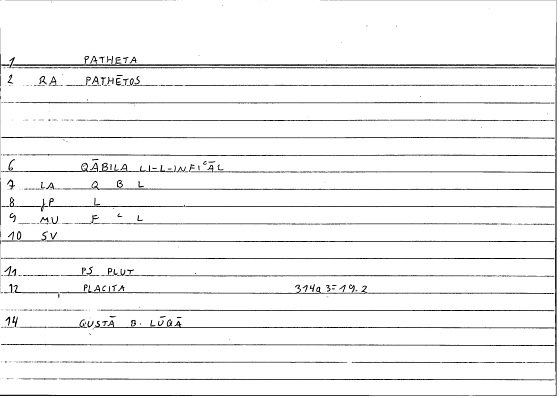 1 PATHETA
2 RA PATHĒTOS
6 QĀBILA LI-L-INFIʿĀL
7 LA Q B L
8 JP L
9 MU F ʿ L
10 SV
11 PS PLUT
12 PLACITA 314a 3=19.2
14 QUSTĀ B. LŪQĀ